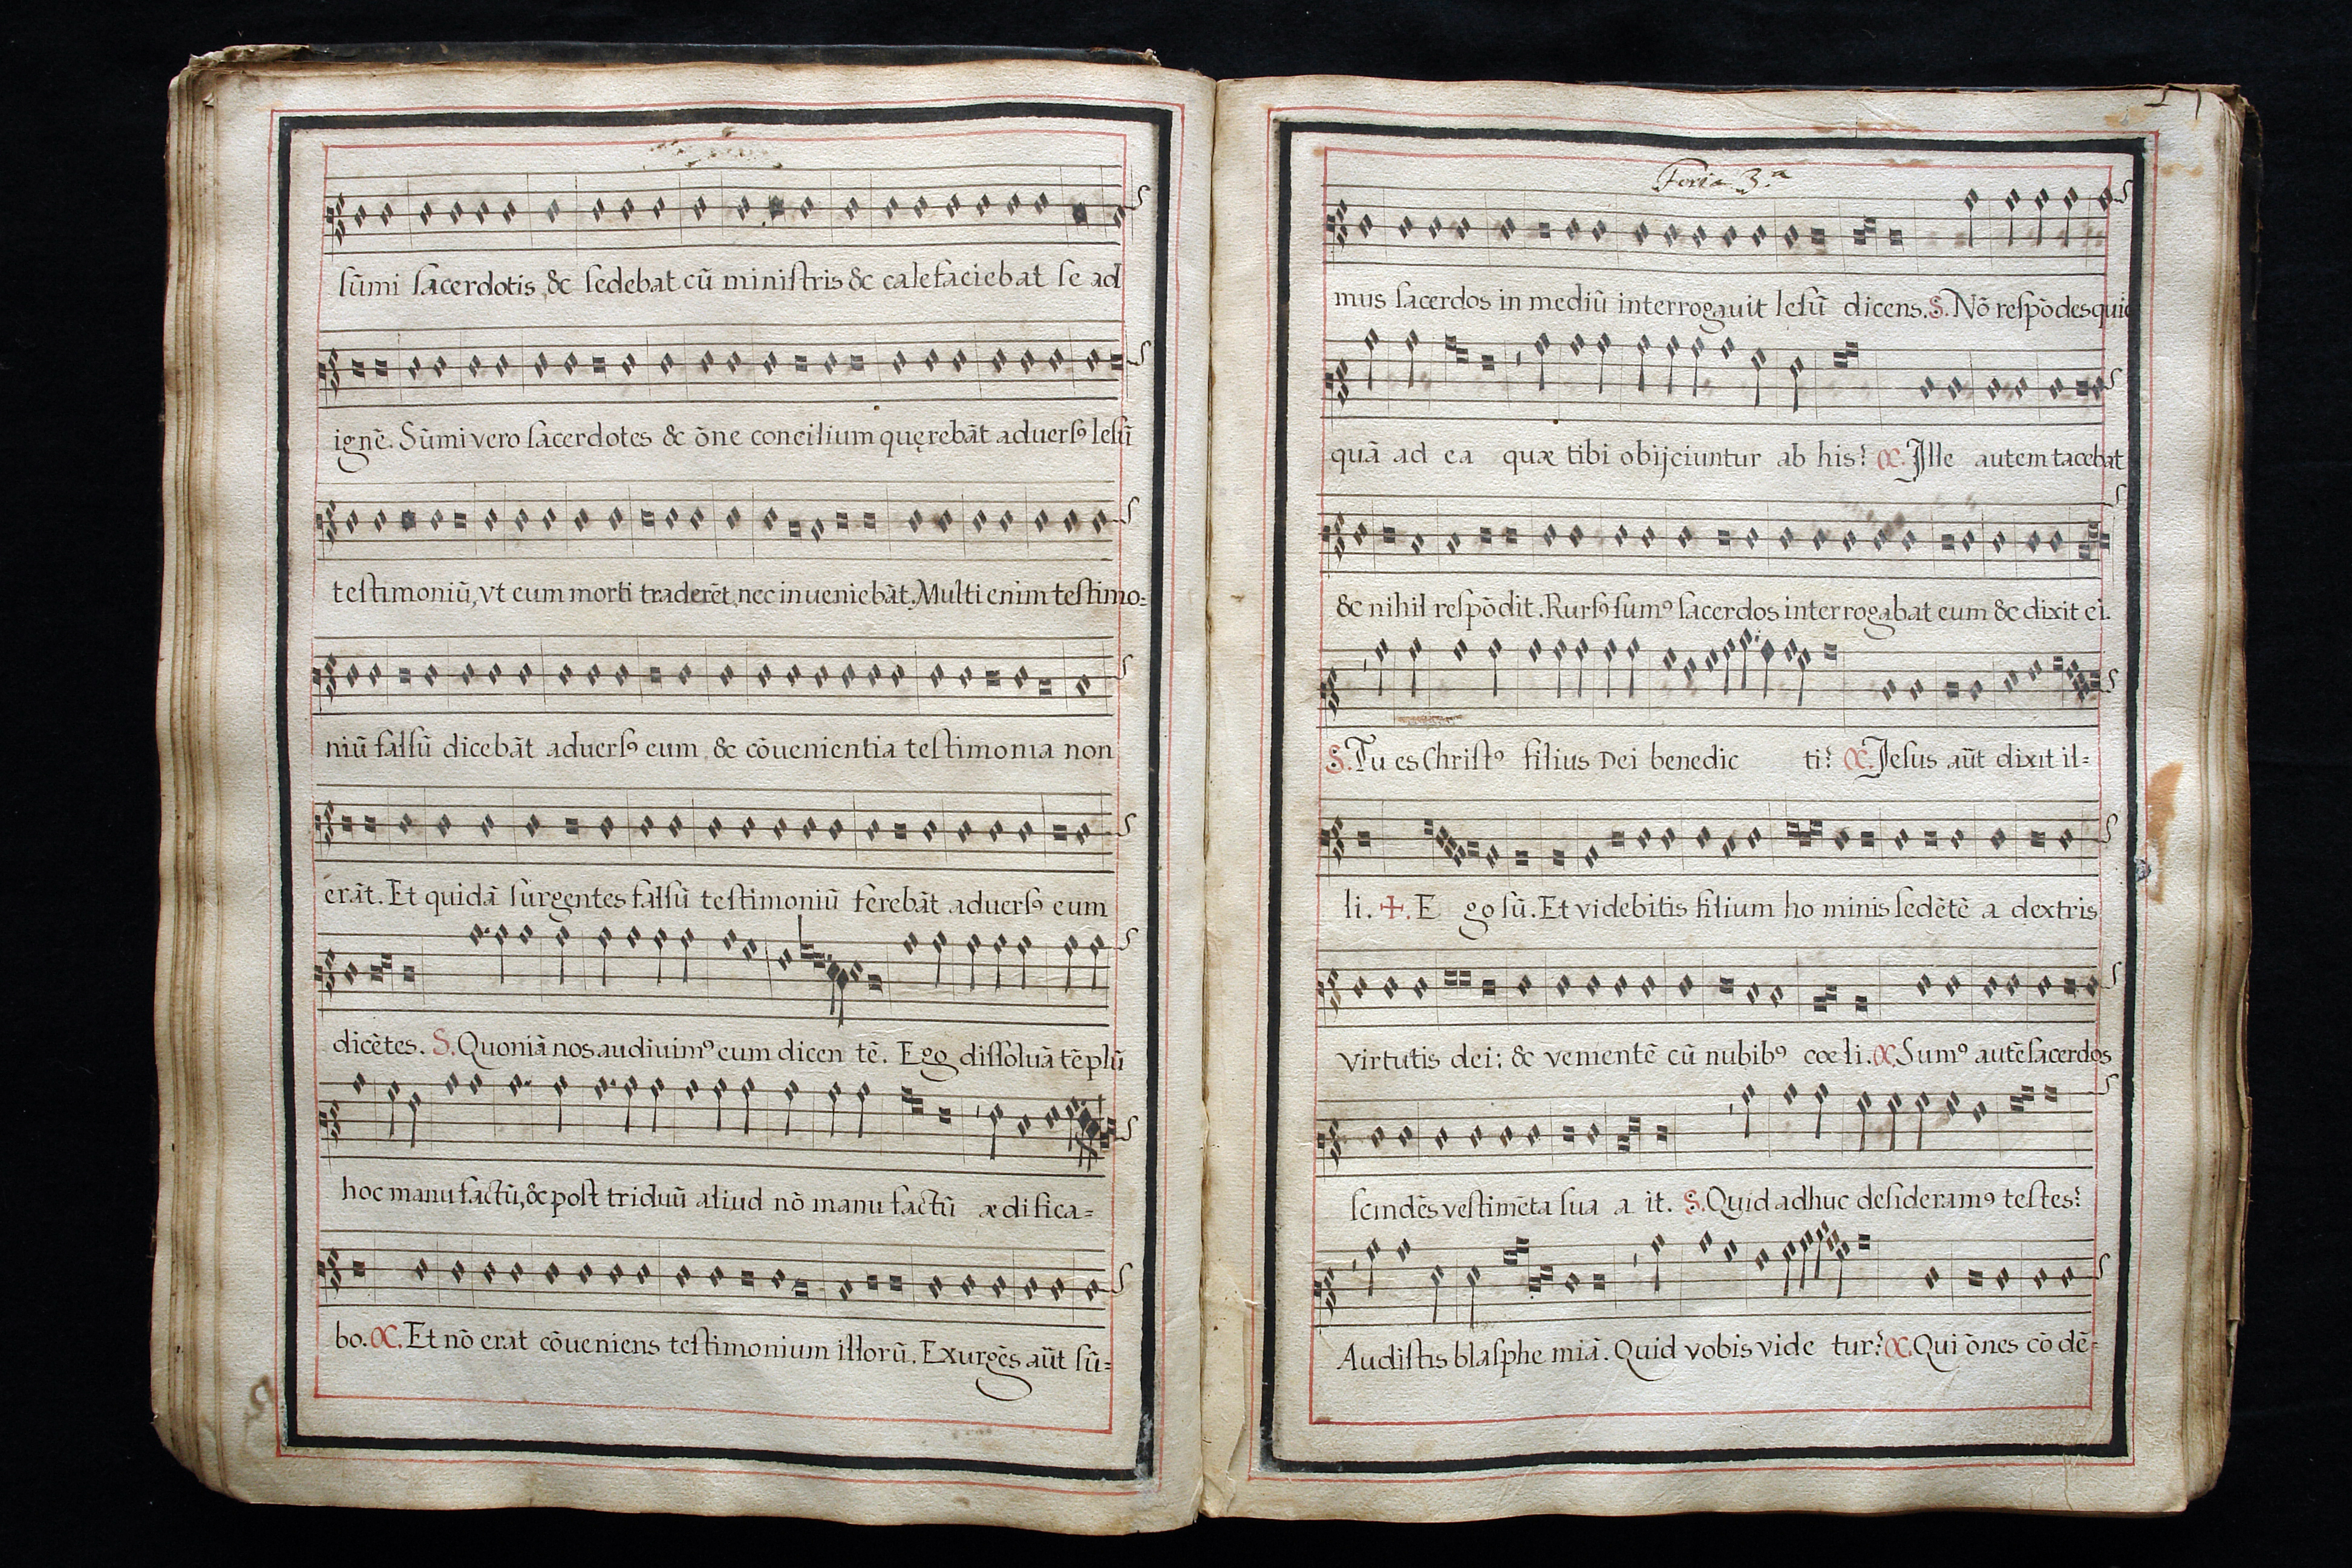 sūmi sacerdotis, &c sedebat cū ministris &c calefaciebat se ad
ignē. Sūmi vero sacerdotes &c ōne concilium quęrebāt adversꝰ Iesū
testimoniū, vt eum morti traderēt, nec inueniebāt. Multi enim testimo=
niū falsū dicebāt adversꝰ eum, &c cōuenientia testimonia non
erāt. Et quidā surgentes falsū testimoniū ferebāt aduersꝰ eum
dicētes. S. Quoniā nos audiuimꝰ eum dicen tē. Ego dissoluā tēplū
hoc manu factū, &c post triduū aliud nō manu factū ædifica=
bo. C. Et nō erat cōueniens testimonium illorū. Exurgēs aūt sū=
Feria 3.ª
mus sacerdos in mediū interrogauit Iesū dicens. S. Nō respōdes quic
quā ad ea quæ tibi obijciuntur ab his? C. Ille autem tacebat
&c nihil respōdit. Rursꝰ sumꝰ sacerdos interrogabat eum &c dixit ei.
S. Tu es Christꝰ filius Dei benedic ti? C. Jesus aūt dixit il=
li. ✠. E go sū. Et videbitis filium ho minis sedētē a dextris
virtutis dei: &c venientē cū nubibꝰ cœli. C. Sumꝰ autē sacerdos
scindēs vestimēta sua a it. S. Quid adhuc desideramꝰ testes?
Audistis blasphe miā. Quid vobis vide tur? C. Qui ōnes cō dē=